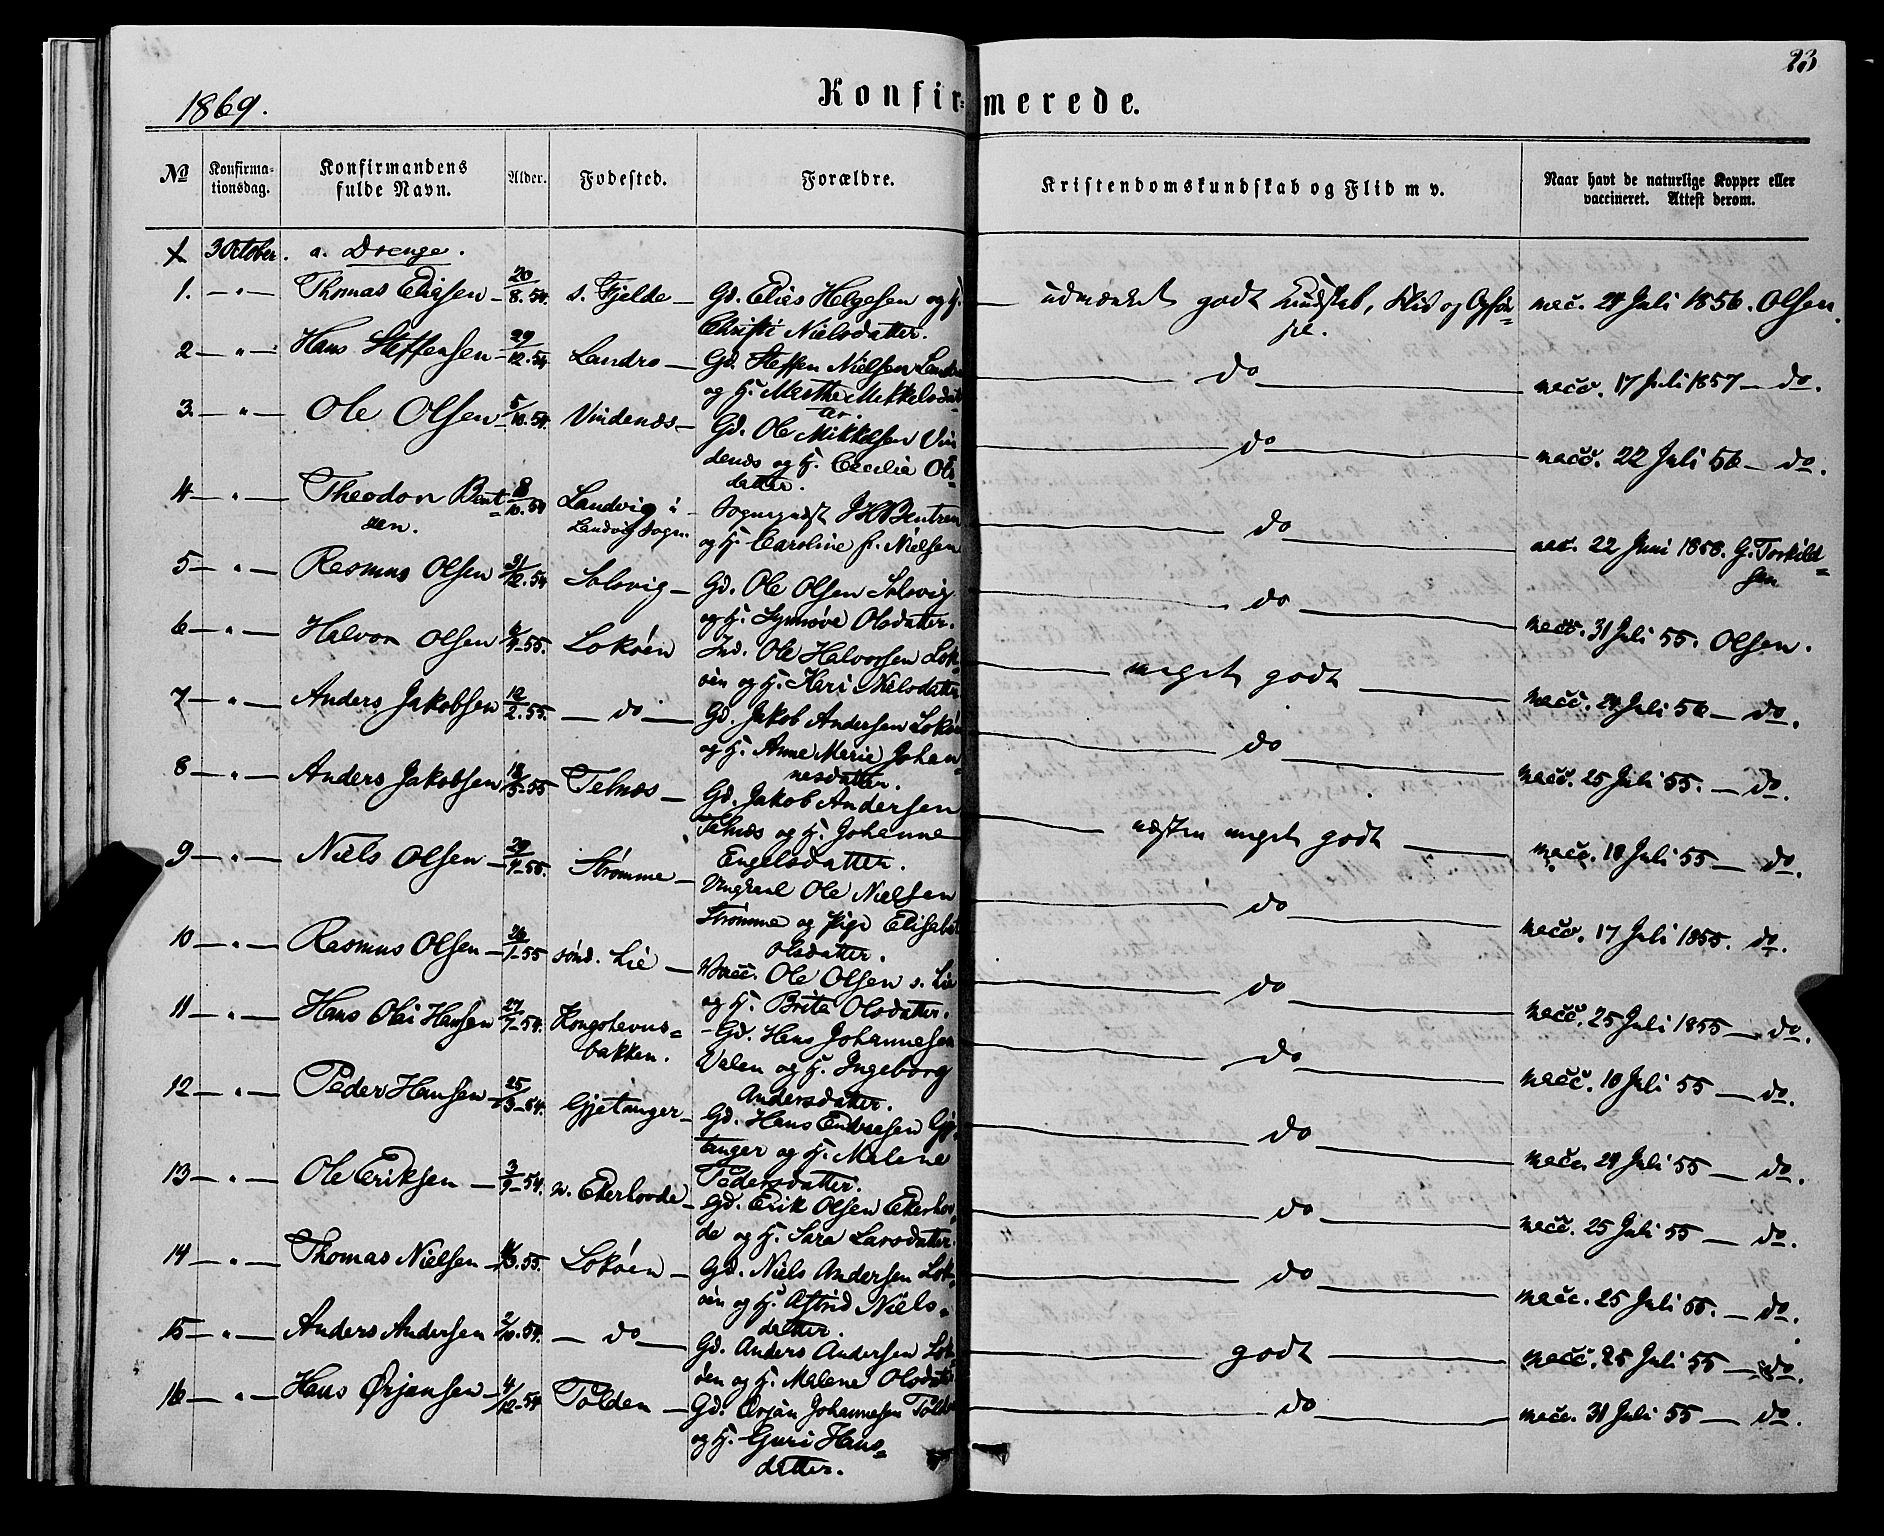 23
1869.
Konfir=merede.
№ Konfirma-tionsdag. Konfirmandens fulde Navn. Alder. Fødested. Forældre. Kristendomskundskab og Flid m v. Naar havt de naturlige Kopper eller vaccineret. Attest derom.
3 October. a. Drenge.
1. — " — Thomas Eliesen — 20/8. 54. s. Fjelde — Gd. Elies Helgesen og H. — udmærket godt Kundskab, Flid og Opfør= vacc. 24 Juli 1856. Olsen.
Christi Nielsdatter. sel.
2 — " — Hans Steffensen — 29/12. 54 Landro — Gd. Steffen Nielsen Landro — do — vacc. 17 Juli 1857 — do.
og H. Marthe Mikkelsdat=
ter.
3. — " — Ole Olsen — 5/10. 54. Vindenæs — Gd. Ole Mikkelsen Vin — do — vacc. 22 Juli 56 — do.
denæs og H. Cecilie Ols
datter.
4 — " — Theodor Bent= 8/10. 54 Landvig i — Sognepræst J H Bentsen — do — vac. 22 Juni 1858. G. Torkild=
sen. Landvig Sogn. og H. Caroline f. Nielsen sen
5 — " — Rasmus Olsen 31/12. 54 Solsvig — Gd. Ole Olsen Solsvig — do — vacc. 31 Juli 55. Olsen.
og H. Synnøve Olsdatter.
6 — " — Halvor Olsen 55. Lokøen Ind. Ole Halvorsen Lok= — meget godt — vacc. 24 Juli 56 — do.
øen og H. Kari Nielsdatter
7 — " — Anders Jakobsen 12/2. 55. — do — Gd. Jakob Andersen Lokøen — do — vacc. 25 Juli 55. — do.
og H. Anne Marie Johan=
nesdatter.
8 — " — Anders Jakobsen 55 Telnæs — Gd. Jakob Andersen — næsten meget godt — vacc. 18 Juli 55 — do.
Telnæs og H. Johanne
Engelsdatter.
9 — " — Niels Olsen — 29/4. 55. Strømme — Ungkarl Ole Nielsen — do — vacc. 17 Juli 1855. do.
Strømme og Pige Elisabet
Olsdatter.
10 — " — Rasmus Olsen — 26/1. 55 sønd. Lie — Vacc. Ole Olsen s. Lie — do — vacc. 25 Juli 1855 — do.
og H. Brita Olsdatter.
11 — " — Hans Olai Hansen 27/7. 54. Kongshavns= — Gd. Hans Johannesen — do — vacc. 18 Juli 55 — do.
bakken. Valen og H. Ingeborg
Andersdatter.
12 — " — Peder Hansen — 25/3. 54. Gjetanger — Gd. Hans Endresen Gje= — do — vacc. 24 Juli 55 — do.
tanger og H. Malene
Pedersdatter.
13 — " — Ole Eriksen — 3/9. 54. n. Ekerhovde — Gd. Erik Olsen Ekerhov= — do — vacc. 25 Juli 55 — do.
de og H. Sara Larsdatter.
14 — " — Thomas Nielsen — 55. Lokøen — Gd. Niels Andersen Lok= — do — vacc. 25 Juli 55. — do.
øen og H. Astrid Niels=
datter.
15 — " — Anders Andersen 2/10. 54. — do — Gd. Anders Andersen Lok — godt — vacc. 25 Juli 55 — do.
øen og H. Malene Olsdatter
16 — " — Hans Ørjansen — 4/12. 54 Tolden — Gd. Ørjan Johannesen Tolden — do — vacc. 31 Juli 55 — do.
og H. Guri Hans=
datter.